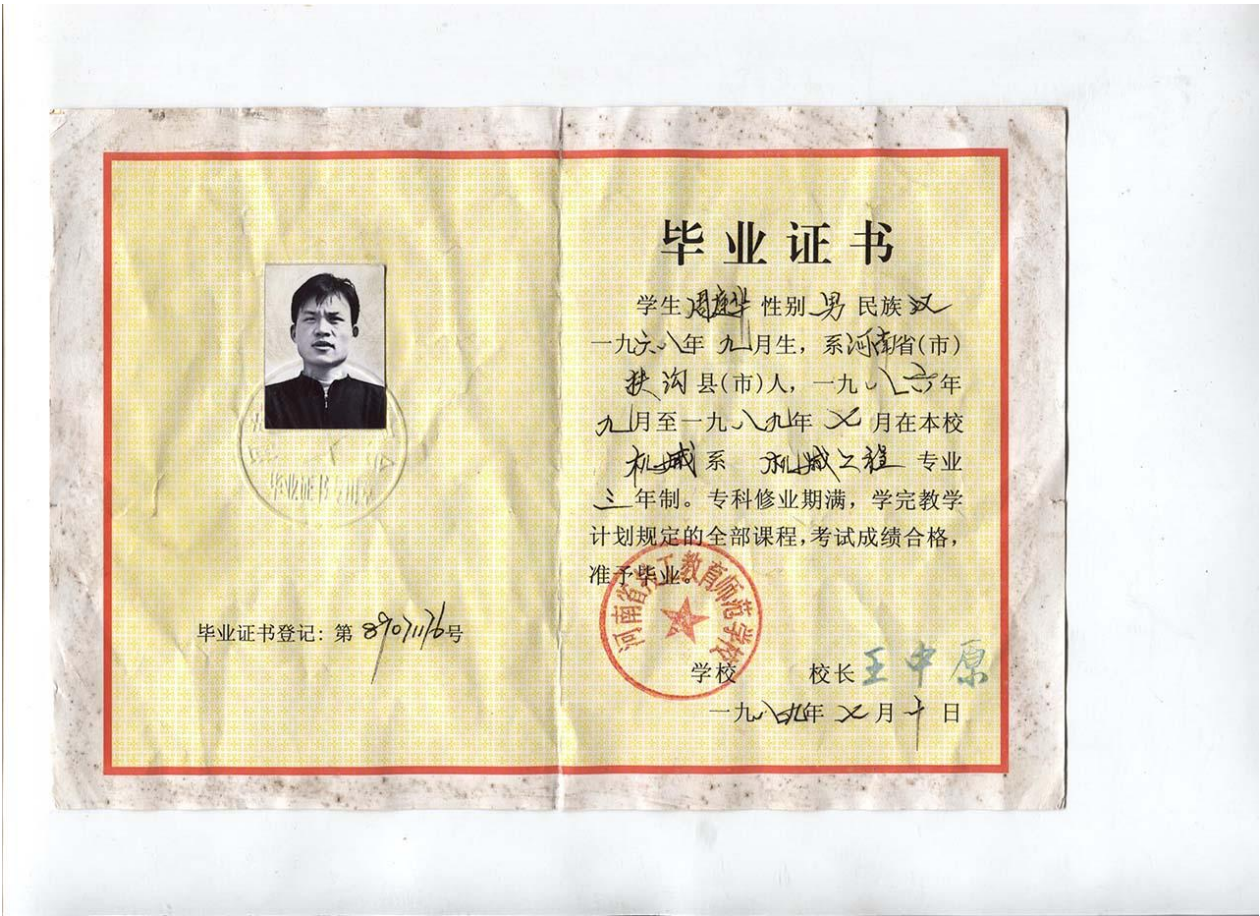 毕业证书用章
毕业证书登记：第8907176号
毕业证书
学生周建华 性别 男 民族 汉
一九六八年 九月生，系河南省(市)
扶沟县(市)人，一九八六年
九月至一九八九年 七 月在本校
机械系 机械工程 专业
三年制。专科修业期满，学完教学
计划规定的全部课程，考试成绩合格，
准予毕业。
河南省 工教育师范学校
学校 校长 王中原
一九八九年 七 月 十 日